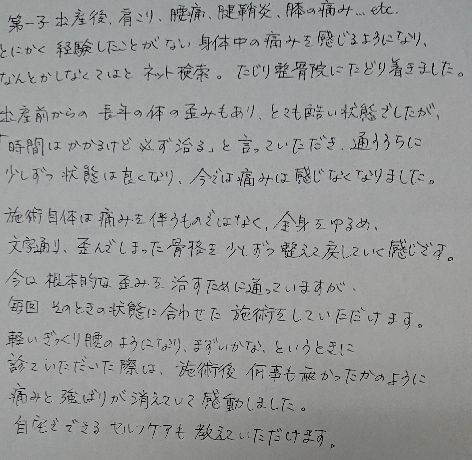 第一子出産後、肩こり、腰痛、腱鞘炎、膝の痛み…etc.
とにかく経験したことがない身体中の痛みを感じるようになり、
なんとかしなくてはとネット検索。たじり整骨院にたどり着きました。
出産前からの長年の体の歪みもあり、とても酷い状態でしたが、
「時間はかかるけど必ず治る」と言っていただき、通ううちに
少しずつ状態は良くなり、今では痛みは感じなくなりました。
施術自体は痛みを伴うものではなく、全身をゆるめ、
文字通り、歪んでしまった骨格を少しずつ整えて戻していく感じです。
今は根本的な歪みを治すために通っていますが、
毎回そのときの状態に合わせた施術をしていただけます。
軽いぎっくり腰のようになり、まずいかな、というときに
診ていただいた際は、施術後何事も無かったかのように
痛みと強ばりが消えていて感動しました。
自宅でできるセルフケアも教えていただけます。